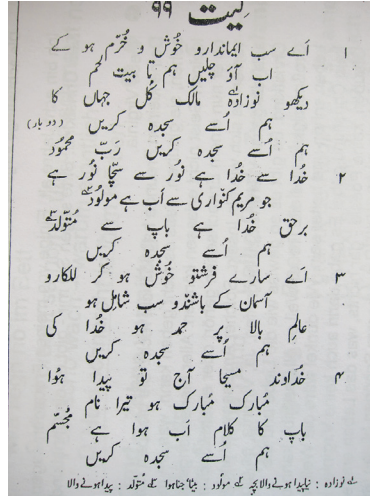 گیت ۹۹
۱ اَے سب ایماندارو خُوش و خُرّم ہو کے
اب آؤ چلیں ہم تا بیت لحم
دیکھو نوزادہ؎۱ مالک کُل جہاں کا
ہم اُسے سجدہ کریں (دو بار)
ہم اُسے سجدہ کریں رَبّ محمُود
۲ خُدا سے خُدا ہے نُور سے سچّا نُور ہے
جو مریم کنواری سے اَب ہے مولُود؎۲
برحق خُدا ہے باپ سے مُتولّد؎۳
ہم اُسے سجدہ کریں
۳ اَے سارے فرشتو خُوش ہو کر للکارو
آسمان کے باشندو سب شامل ہو
عالمِ بالا پر حمد ہو خُدا کی
ہم اُسے سجدہ کریں
۴ خُداوند مسیحا آج تو پیدا ہُوا
مُبارک مُبارک ہو تیرا نام
باپ کا کلام اَب ہوا ہے مُجسّم
ہم اُسے سجدہ کریں
؎۱ نوزادہ : نیا پیدا ہونے والا بچہ ؎۲ مولُود : بیٹا جنا ہوا ؎۳ مُتولّد : پیدا ہونے والا